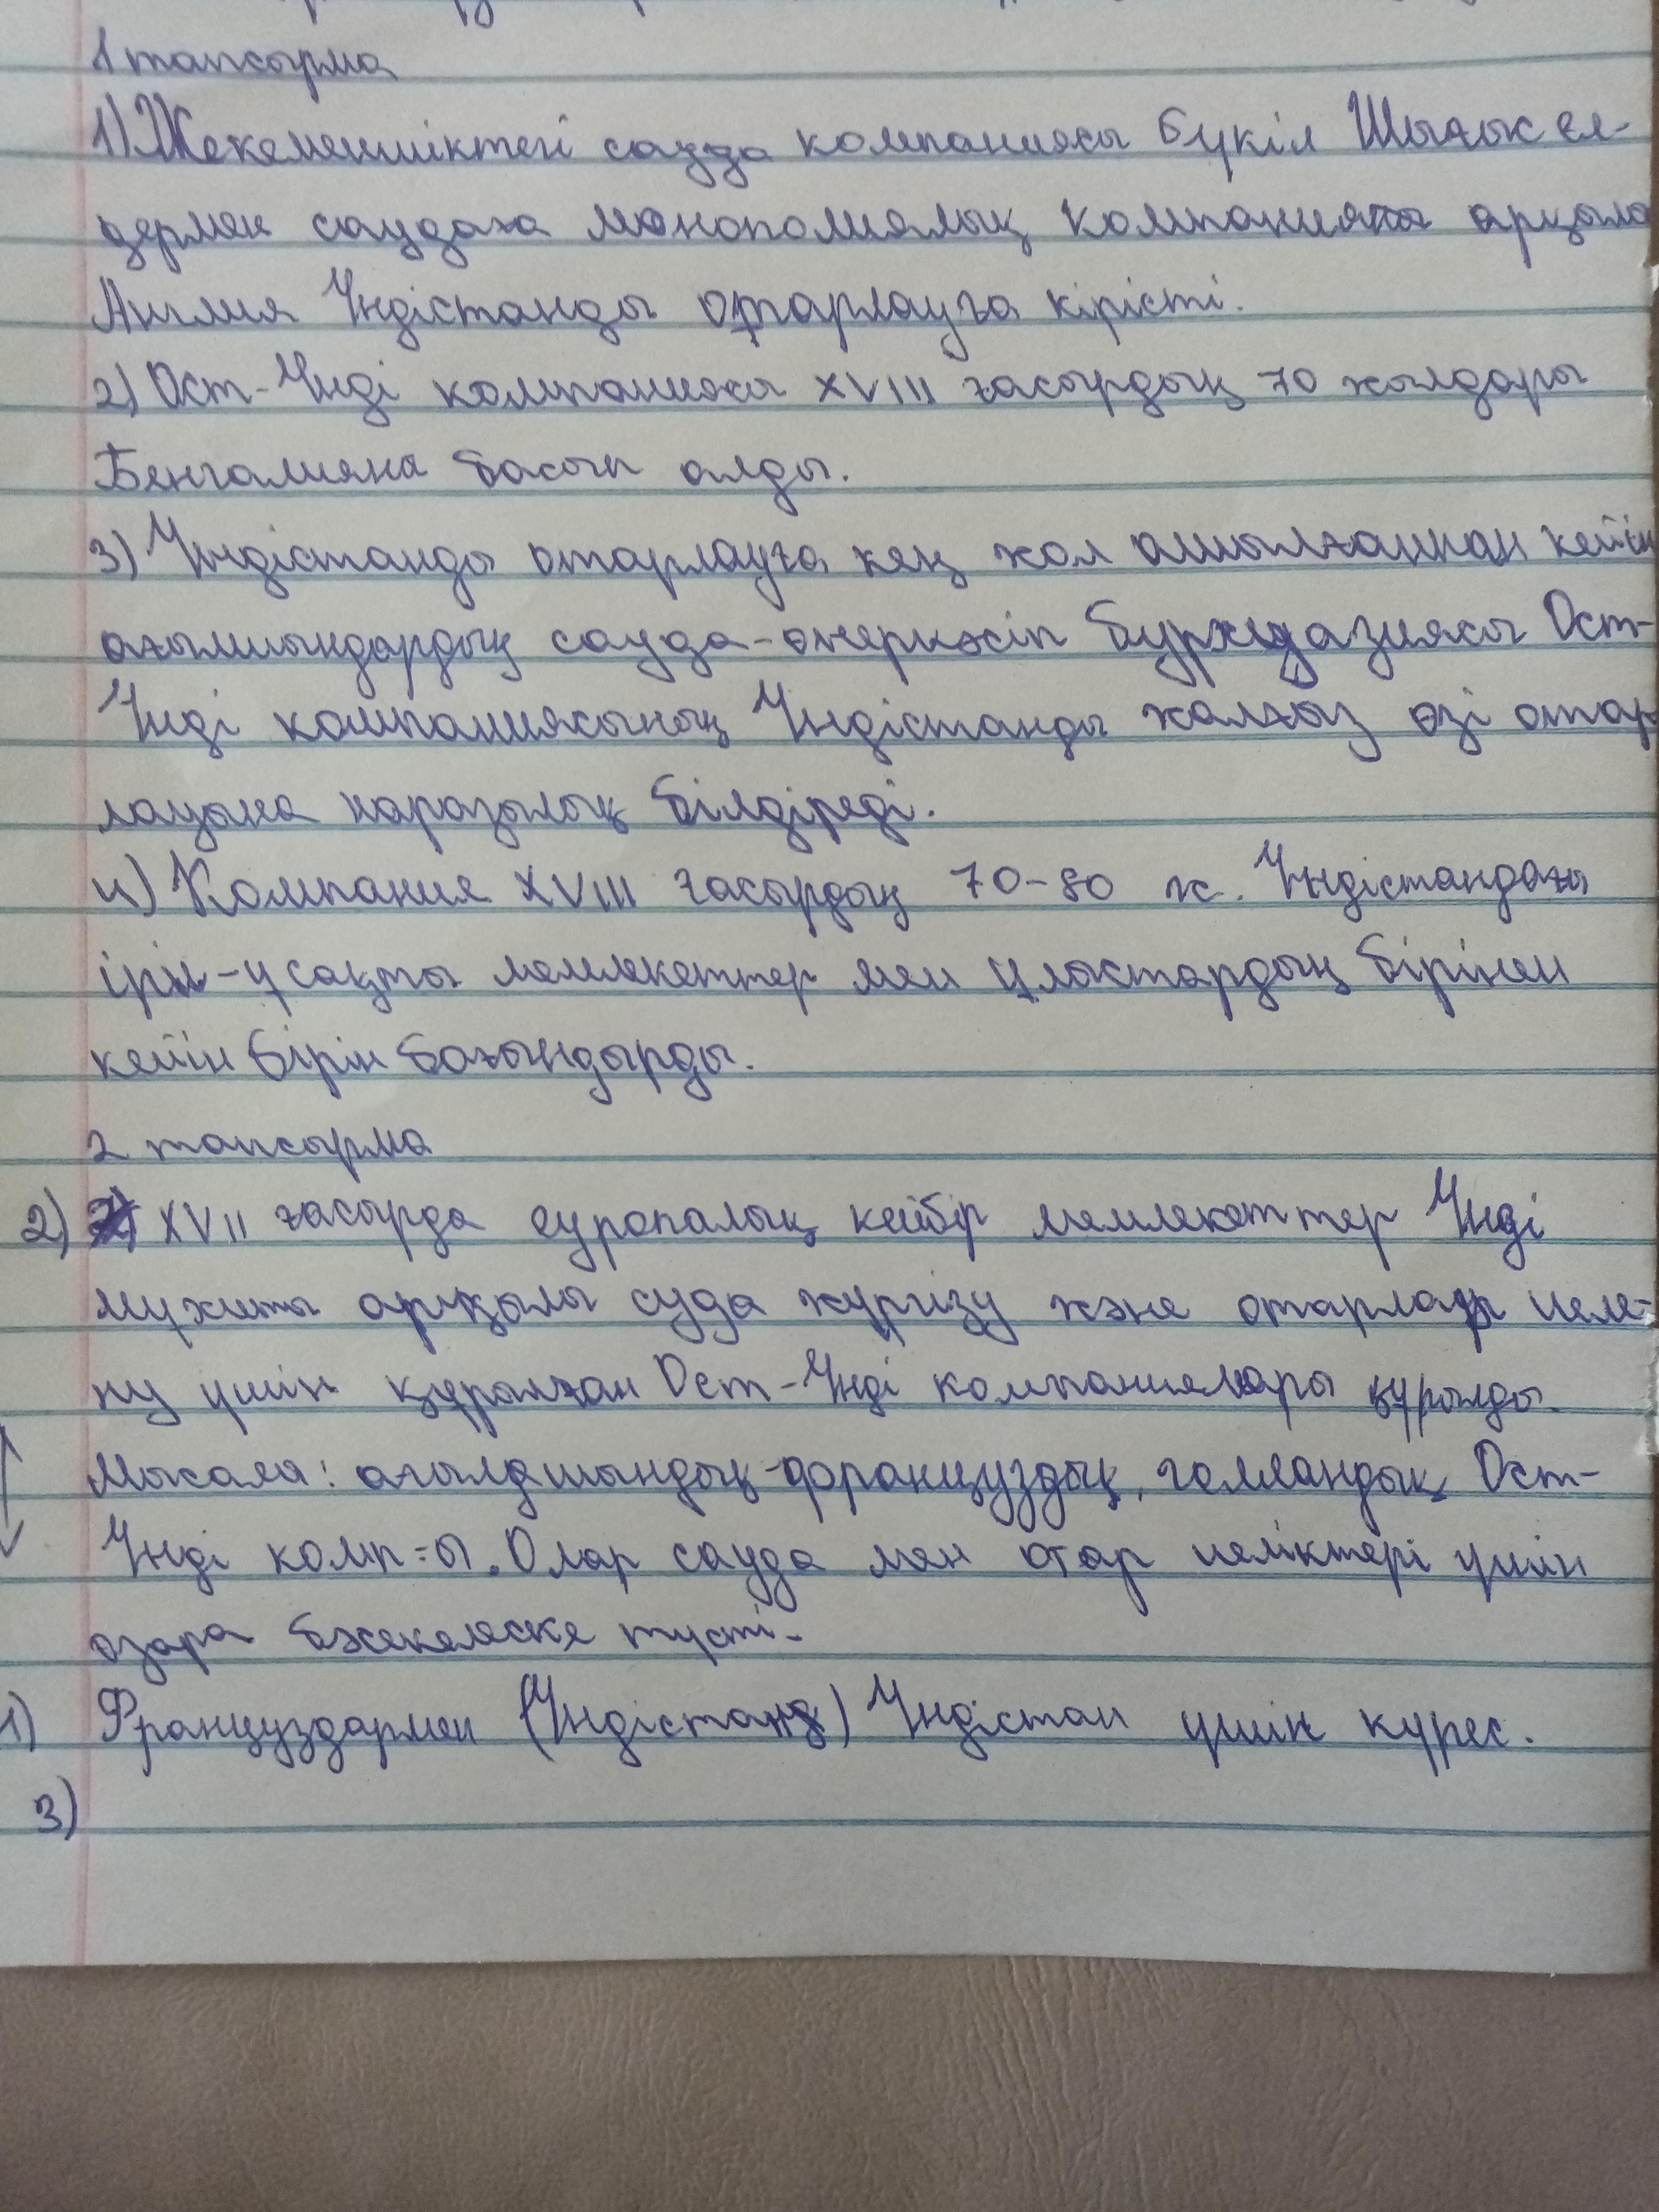 1 тапсырма
1) Жекеменшіктегі сауда компаниясы бүкіл Шығыс ел-
дермен саудаға монополиялық компанияны арқылы
Англия Үндістанды отарлауға кірісті.
2) Ост-Үнді компаниясы XVIII ғасырдың 70 жылдары
Бенгалияна басып алды.
3) Үндістанды отарлауға кең жол ашылғаннан кейін
ағылшындардың сауда-өнеркәсіп буржуазиясы Ост-
Үнді компаниясының Үндістанды жалғыз өзі отар
лауына наразылық білдіреді.
4) Компания XVIII ғасырдың 70-80 ж. Үндістандағы
ірілі-ұсақты мемлекеттер мен ұлыстардың бірінен
кейін бірін бағындырды.
2 тапсырма
2) XVII ғасырда еуропалық кейбір мемлекеттер Үнді
мұхиты арқылы суда жүргізу және отарлары иеле-
ну үшін құрылған Ост-Үнді компаниялары құрылды.
Мысалы: ағылдшындық-француздық, голландық Ост-
Үнді комп-ы. Олар сауда мен отар иеліктері үшін
өзара бәсекелеске түсті.
1) Француздармен (Үндістанд) Үндістан үшін күрес.
3)